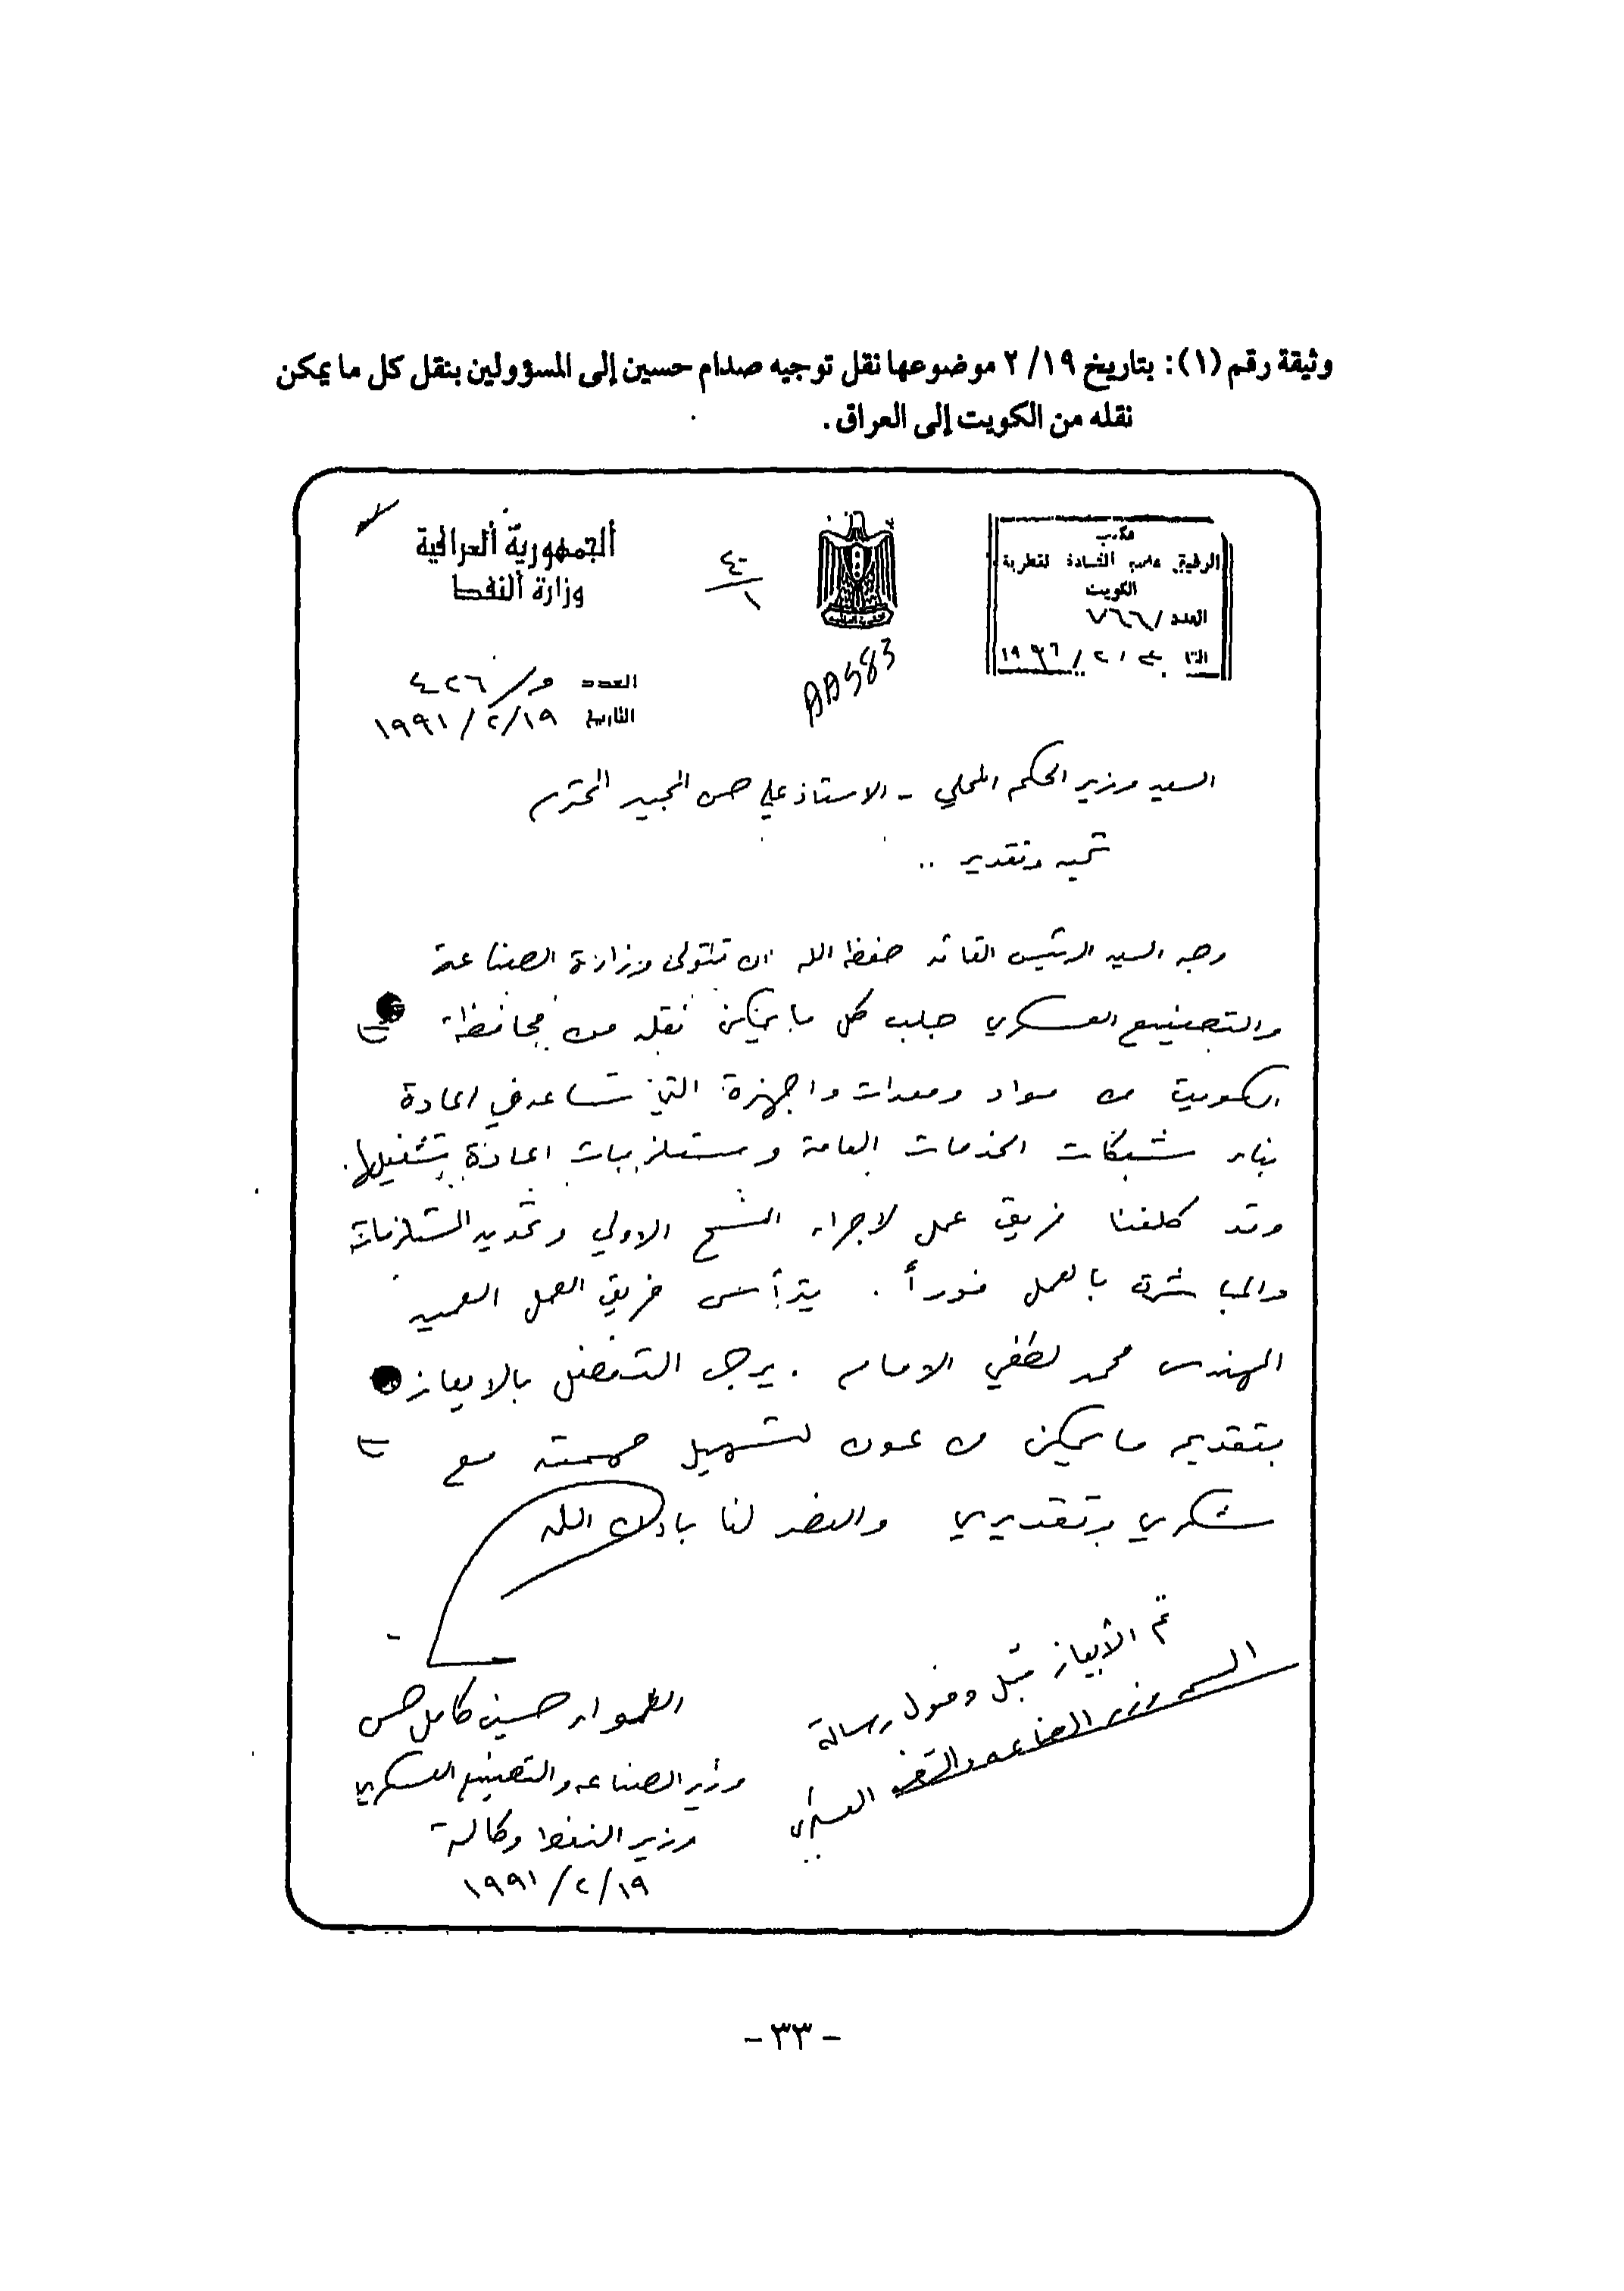 وثيقة رقم (١): بتاريخ ١٩/ ٢ موضوعها نقل توجيه صدام حسين إلى المسؤولين بنقل كل ما يمكن
نقله من الكويت إلى العراق.
مكتب
الرفيق عضو القيادة القطرية
الكويت
العدد / ٧٦٦
٤٠
١
الجمهورية العراقية
وزارة النفط
العدد و/ ٤٢٦
التاريخ ١٩/ ٢/ ١٩٩١
AA583
السيد وزير الحكم المحلي - الاستاذ علي حسن المجيد المحترم
تحية وتقدير ..
وجه السيد الرئيس القائد حفظه الله ان تتولى وزارة الصناعة
والتصنيع العسكري جلب كل ما يمكن نقله من محافظة
الكويت من مواد ومعدات واجهزة التي تساعد في اعادة
بناء شبكات الخدمات العامة ومستلزمات اعادة تشغيلها.
وقد كلفنا فريق عمل لاجراء المسح الاولي وتحديد المستلزمات
والمباشرة بالعمل فوراً . يترأس فريق العمل العميد
المهندس محمد لطفي الامام . يرجى التفضل بالايعاز
بتقديم ما يمكن من عون لتسهيل مهمته مع
شكري وتقديري والنصر لنا باذن الله
تم الايعاز قبل وصول رسالة
السيد وزير الصناعة والتصنيع
العسكري
حسين كامل حسن
وزير الصناعة والتصنيع العسكري
وزير النفط وكالة
١٩/ ٢/ ١٩٩١
- ٣٣ -